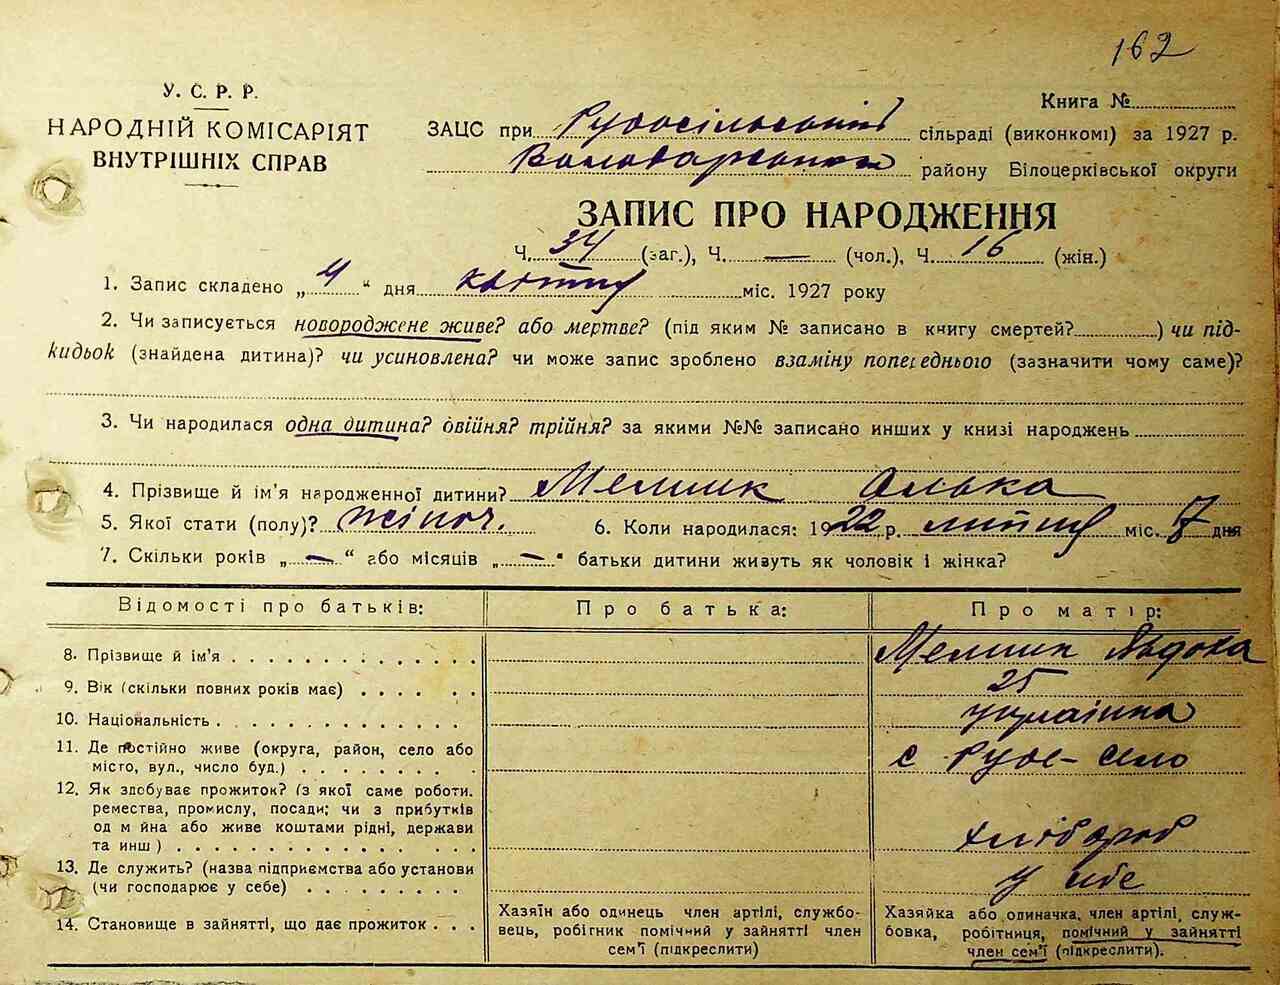 162
У. С. Р. Р.
НАРОДНІЙ КОМІСАРІЯТ
ВНУТРІШНІХ СПРАВ
Книга №
ЗАЦС при Рудосільській сільраді (виконкомі) за 1927 р.
Володарського району Білоцерківської округи
ЗАПИС ПРО НАРОДЖЕННЯ
Ч. 34 (заг.), Ч. — (чол.), Ч. 16 (жін.)
1. Запис складено „ 4 “ дня квітня міс. 1927 року
2. Чи записується новороджене живе? або мертве? (під яким № записано в книгу смертей? ) чи під-
кидьок (знайдена дитина)? чи усиновлена? чи може запис зроблено взаміну попереднього (зазначити чому саме)?
3. Чи народилася одна дитина? двійня? трійня? за якими №№ записано инших у книзі народжень
4. Прізвище й ім'я народженної дитини? Мельник Олька
5. Якої стати (полу)? жіноч. 6. Коли народилася: 1922 р. липня міс. 7 дня
7. Скільки років „ — “ або місяців „ — “ батьки дитини живуть як чоловік і жінка?
Відомості про батьків: Про батька: Про матір:
8. Прізвище й ім'я Мельник Явдоха
9. Вік (скільки повних років має) 25
10. Національність українка
11. Де постійно живе (округа, район, село або с Руде-село
місто, вул., число буд.)
12. Як здобуває прожиток? (з якої саме роботи.
ремества, промислу, посади; чи з прибутків
од майна або живе коштами рідні, держави
та инш) хлібороб
13. Де служить? (назва підприємства або установи
(чи господарює у себе) у себе
14. Становище в зайнятті, що дає прожиток
Хазяїн або одинець член артілі, службо-
вець, робігник помічний у зайнятті член
сем'ї (підкреслити)
Хазяйка або одиначка, член артілі, служ-
бовка, робітниця, помічний у зайнятті
член сем'ї (підкреслити).